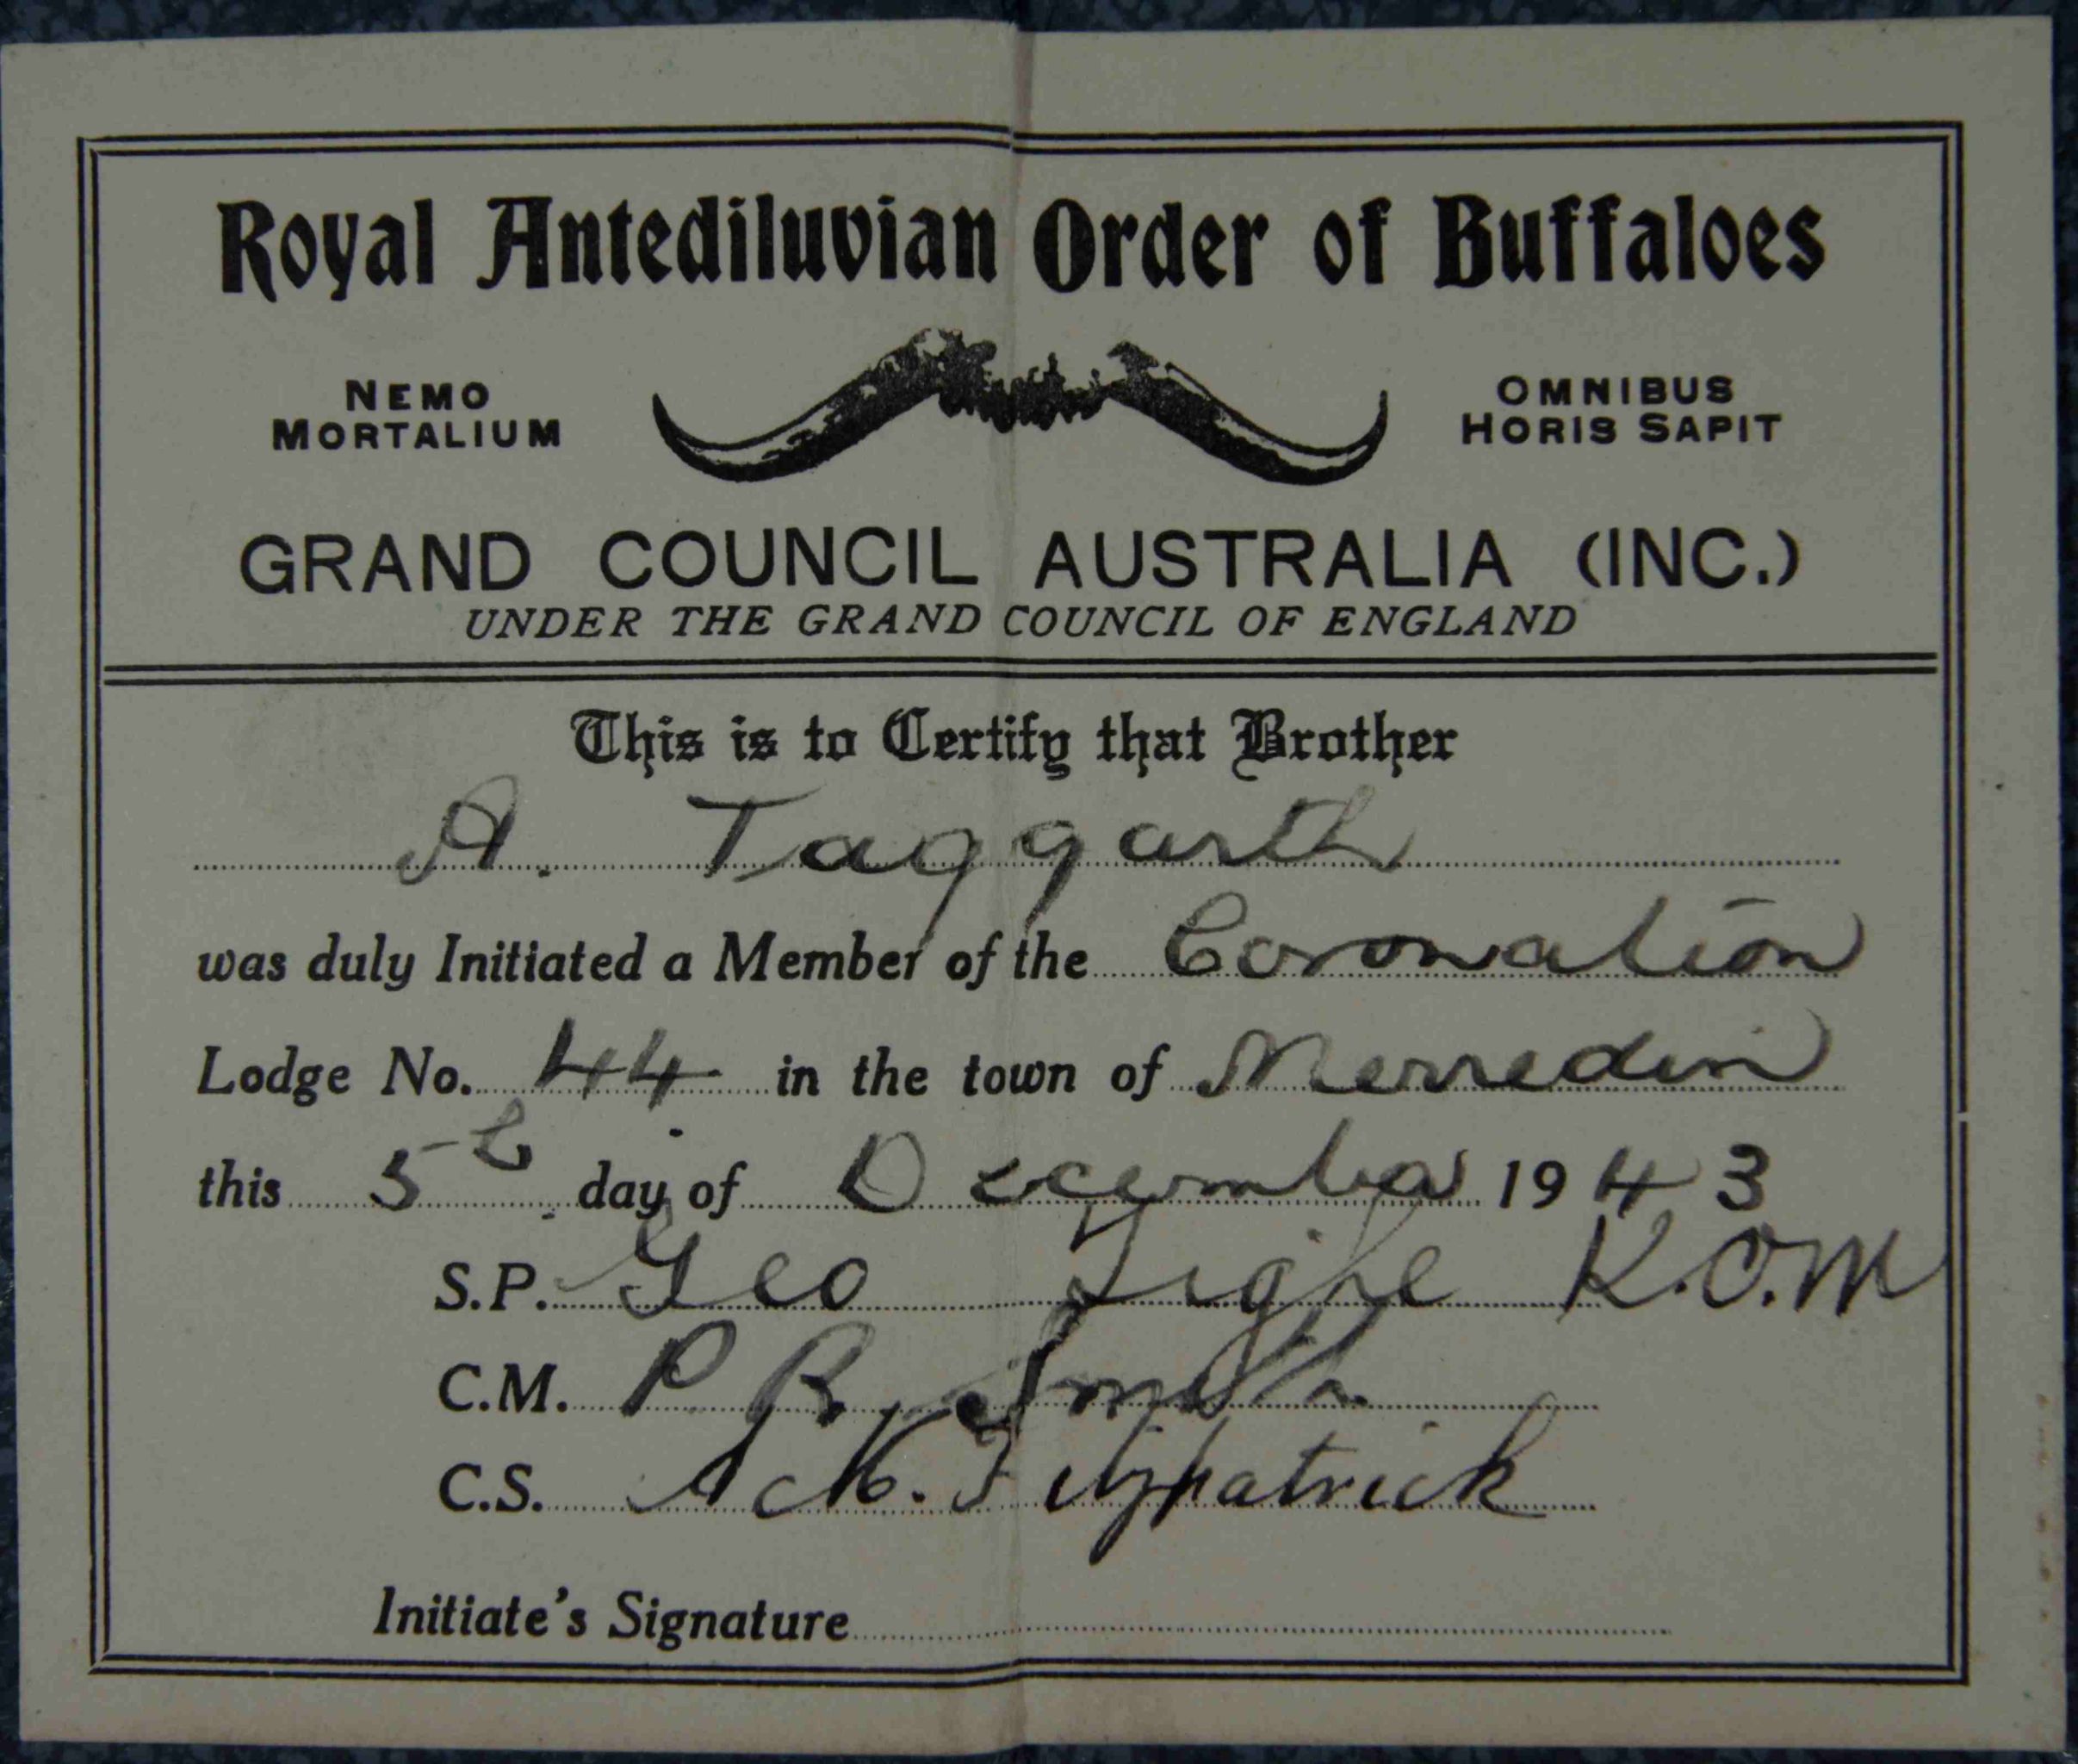 Royal Antediluvian Order of Buffaloes
NEMO MORTALIUM
OMNIBUS HORIS SAPIT
GRAND COUNCIL AUSTRALIA (INC.)
UNDER THE GRAND COUNCIL OF ENGLAND
This is to Certify that Brother
A. Taggarth
was duly Initiated a Member of the Coronation
Lodge No. 44 in the town of Merredin
this 5th day of December 1943
S.P. Geo Tighe K.O.M
C.M. P R Smith
C.S. Fitzpatrick
Initiate's Signature